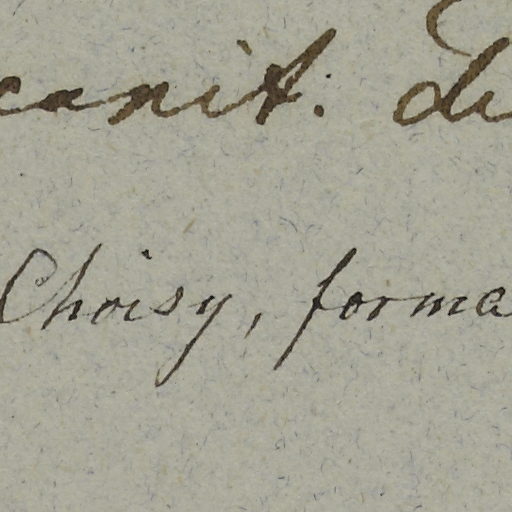 canit. de
Choisy, forma